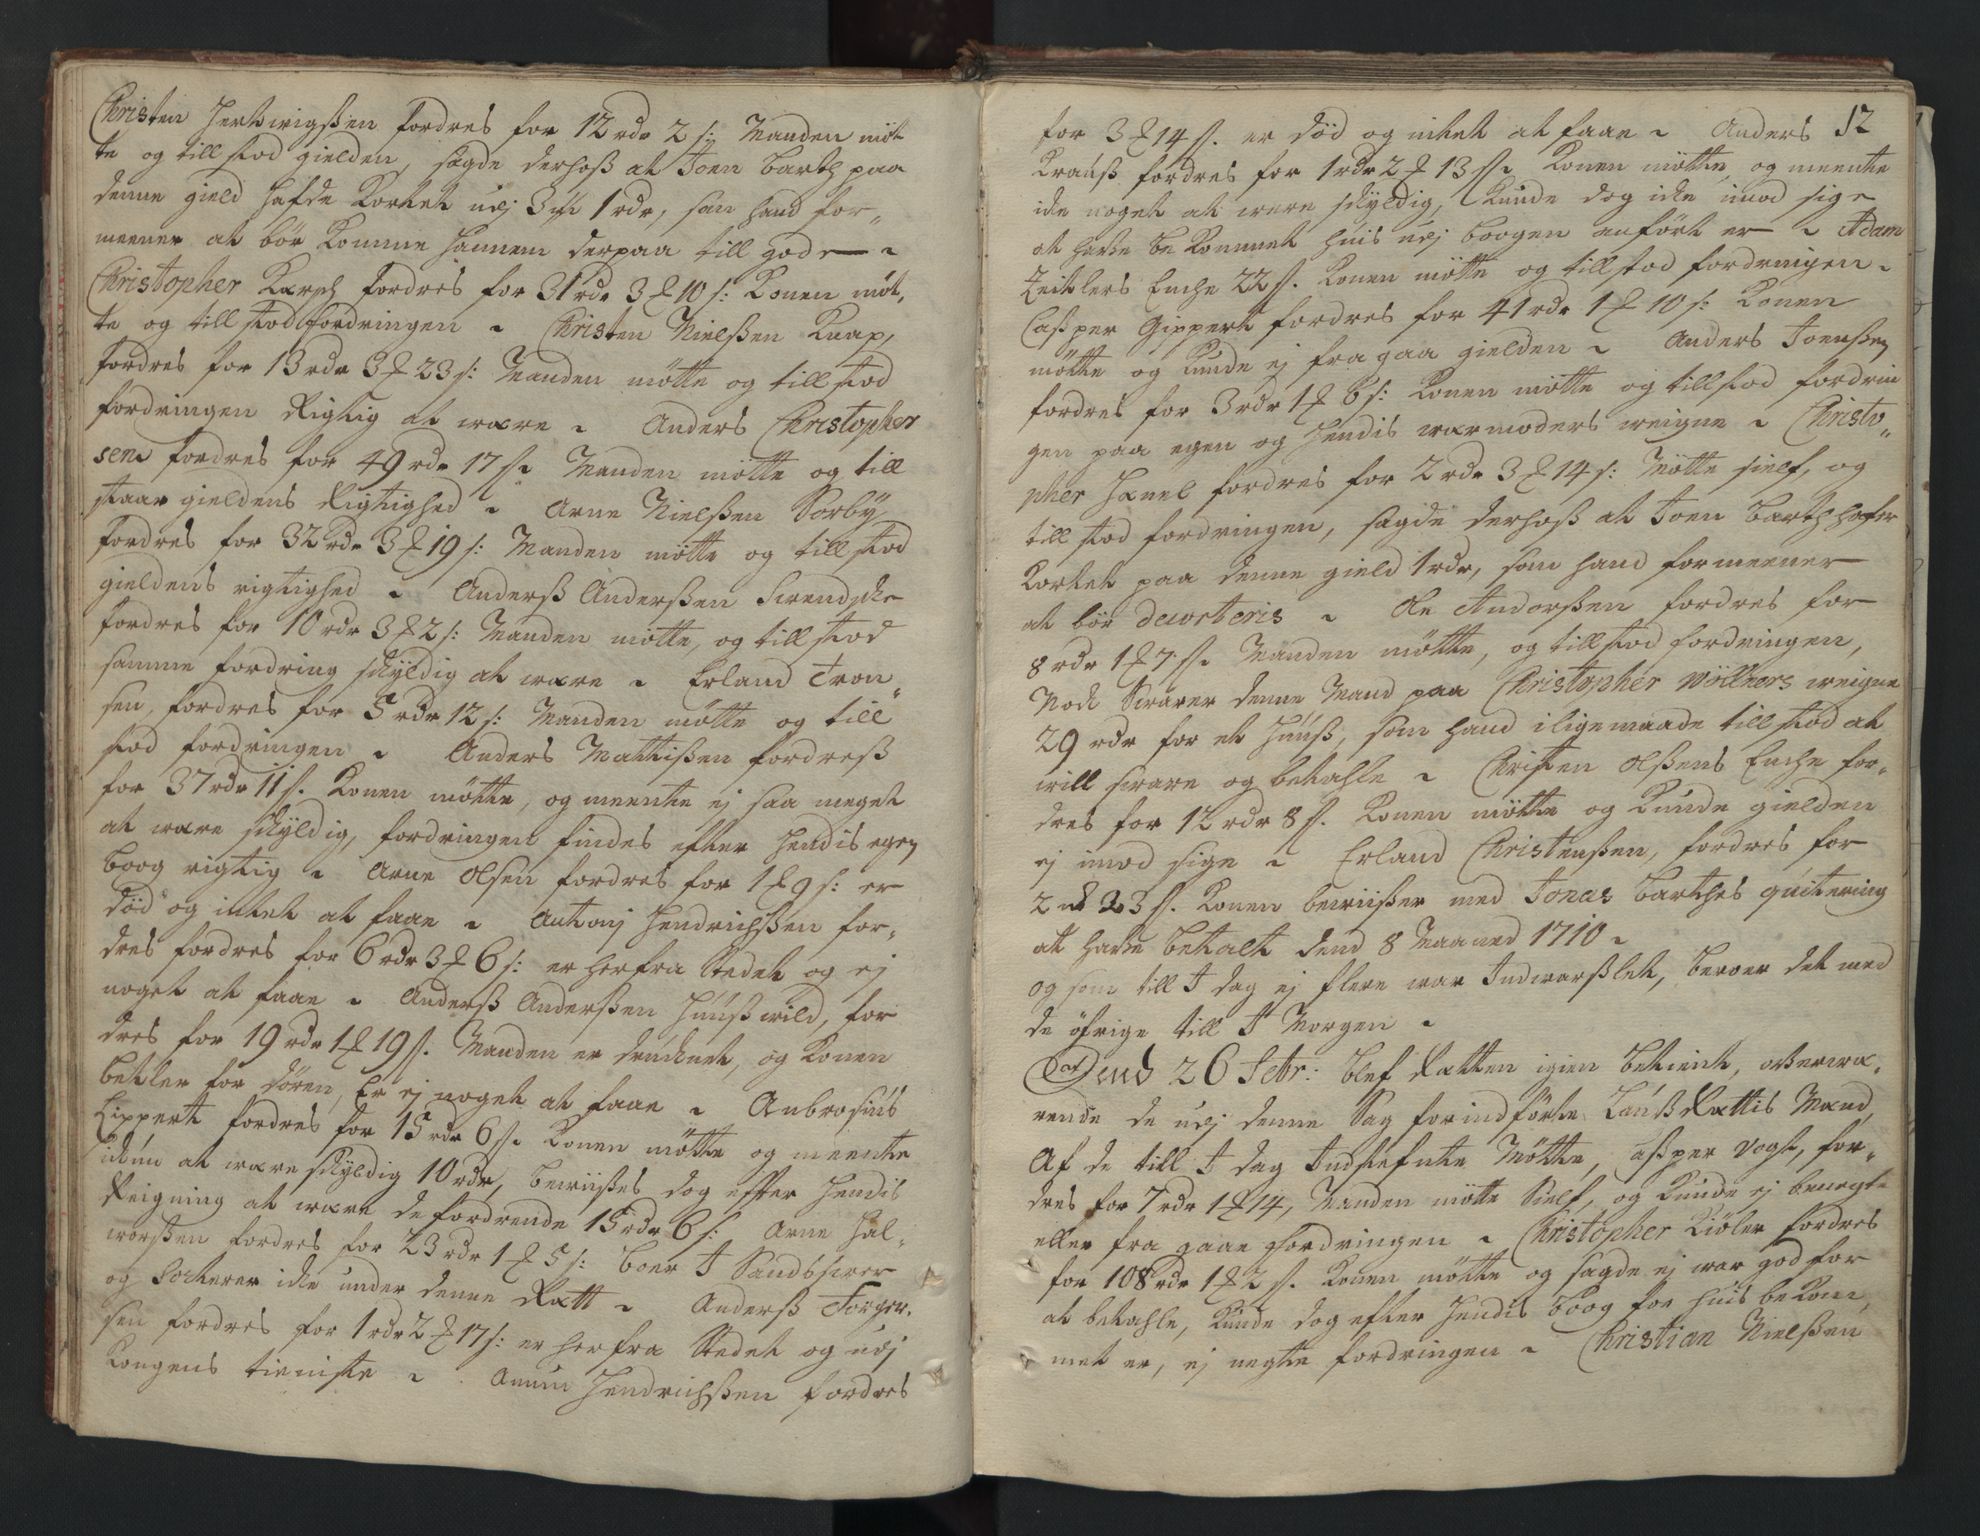 Christen Hertwigßen fordres for 12 rdr 2 s: Manden møt
te og till stod gielden, sagde derhoß at Joen Barth paa
denne gield hafde Kortet udj 1 rdr, som hand for„
meener at bør komme hannem derpaa till gode ~
Christopher Karsch fordres for 31 rdr 3 ₰ 10 s: Konen møt,
te og till stod fordringen ~ Christen Nielßen Knap,
fordres for 13 rdr 3 ₰ 23 s: Manden møtte og till stod
fordringen Rigtig at være ~ Anders Christopher
sen fordres for 49 rdr 17 s. Manden møtte og till
staar gieldens Rigtighed ~ Arne Nielßen Sorby
fordres for 32 rdr 3 ₰ 19 s: Manden møtte og till stod
gieldens rigtighed ~ Anderß Anderßen Swendske
fordres for 10 rdr 3 ₰ 2 s: Manden møtte, og till stod
samme fordring skyldig at være ~ Erland Tron„
sen, fordres for 5 rdr 12 s: Manden møtte og till
stod fordringen ~ Anders Mattißen fordreß
for 37 rdr 11 s. Konen møtte, og meente ej saa meget
at være skyldig, fordringen findes efter hendis egen
boog rigtig ~ Arne Olsen fordres for 1 ₰ 9 s: er
død og intet at faae ~ Antonj Hendrichßen for„
dres fordres for 6 rdr 3 ₰ 6 s: er herfra Stedet og ej
noget at faae ~ Anderß Anderßen Hüußwild, for
dres for 19 rdr 1 ₰ 19 s. Manden er drucknet, og Konen
betler for dören, Er ej noget at faae ~ Anbrosius
Lippert fordres for 15 rdr 6 s. Konen møtte og meente
ickun at være skyldig 10 rdr, bewiißes dog efter hendis
Reigning at være de fordrende 15 rdr 6 s: Arne Hal„
worßen fordres for 23 rdr 1 ₰ 5 s: boer I Sandswer
og sorterer icke under denne Rætt ~ Anderß Torger„
sen fordres for 1 rdr 2 ₰ 17 s: er herfra Stedet og udj
Kongens tieniste ~ Hendrichßen fordres
12
for 3 ₰ 14 s. er død og intet at faae ~ Anders
Krauß fordres for 1 rdr 2 ₰ 13 s. Konen møtte, og meente
icke noget at were skyldig, Kunde dog icke imod sige
at hafve bekommet huis udj boogen anført er ~ Adam
Zeitlers Enche 22 s. Konen møtte og till stod fordringen ~
Casper Gippert fordres for 41 rdr 1 ₰ 10 s: Konen
møtte og Kunde ej fragaa gielden ~ Anders Joenßen
fordres for 3 rdr 1 ₰ 6 s: Konen møtte og till stod fordrin
gen paa egen og hendis wærmoders weigne ~ Christo„
pher Hanel fordres for 2 rdr 3 ₰ 14 s: Møtte sielf, og
till stod fordringen, sagde derhoß at Joen Barth hafer
Kortet paa denne gield 1 rdr, som hand formeener
at bør decorteris ~ Ole Anderßen fordres for
8 rdr 1 ₰ 7 s. Manden møtte, og till stod fordringen,
Nock Swarer denne Mand paa Christopher Wöllners weigne
29 rdr for et Hüuß, som hand iligemaade till stod at
will sware og betahle ~ Christen Olßens Enche for„
dres for 12 rdr 8 s. Konen møtte og Kunde gielden
ej imod sige ~ Erland Christenßen, fordres for
2 rdr 23 s. Konen bewiißer med Jonas Barthes quitering
at hafve betalt dend 8 Maaned 1710 ~
og som till I dag ej flere war Indwarßlet, beroer det med
de øfrige till I Morgen ~
Dend 26 Febr: blef Rætten igien betient, ofverwæ„
rende de udj denne Sag forindförte Laußrættis Mænd,
Af de till I dag Indstefnte Møtte, Casper Vogt, for„
dres for 7 rdr 1 ₰ 14, Manden møtte Sielf, og Kunde ej benegte
eller fra gaae fordringen ~ Christopher Kiöler fordres
for 108 rdr 1 ₰ 2 s. Konen møtte og sagde ej war god for
at betahle, Kunde dog efter hendis boog for huis bekom„
met er, ej negte fordringen ~ Christian Nielßen